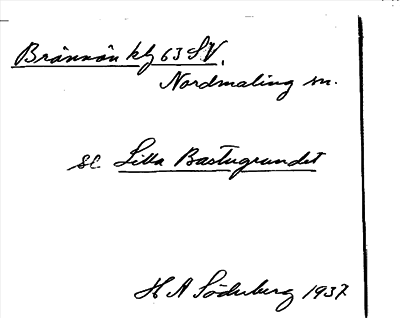 Brännön kbg 63 S.V.
Nordmaling sn.
se Lilla Bastugrundet
H A Söderberg 1937